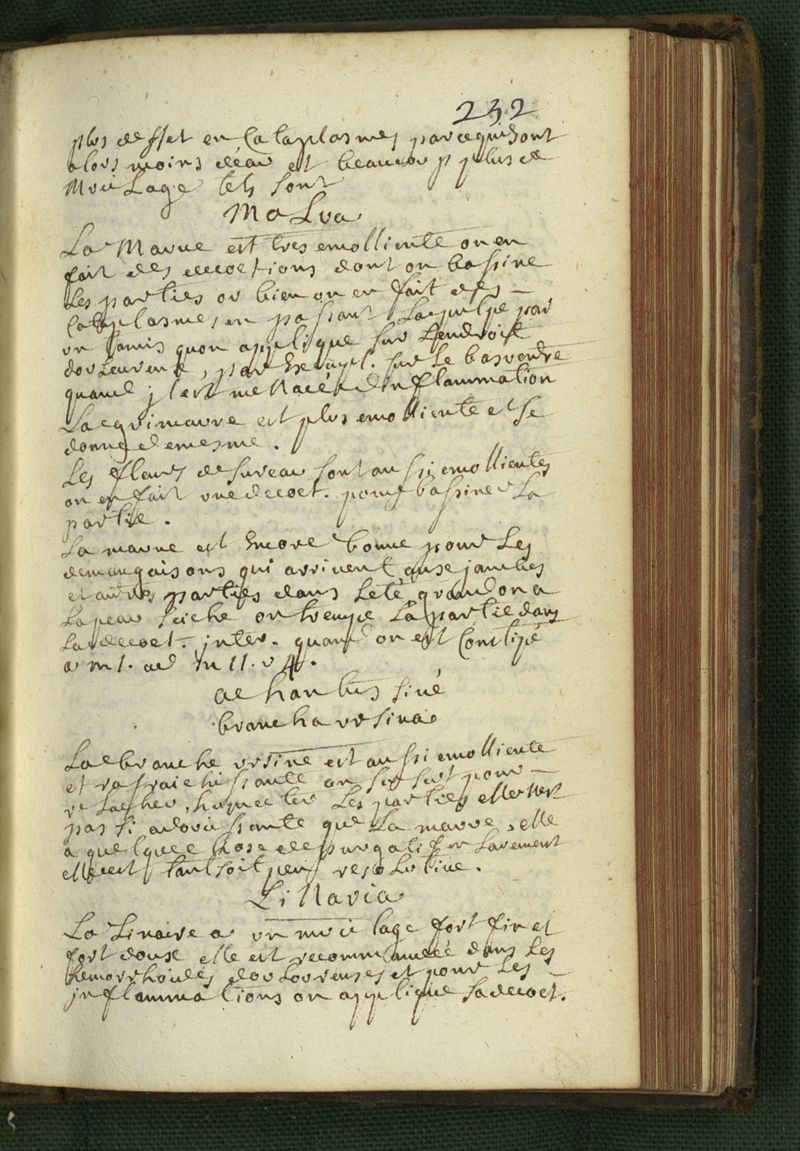 232
plus deffet en Cataplasmes parcequilsont
alors moins deau et beaucoup plus de
Mucilage tels sont
Malva
La Mauue est tres emolliente on en
fait des decoctions dont on bassine
Les parties ou bien on en fait des
Cataplasmes, en passant Lapulpe par
un tamis quon applique sur Lendroit
douLoureux, par Exempl. sur Le basventre
quand jl est menacé dInflammation
Laguimauve est plus emolliente et se
donne demesme.
Les fleurs de sureau sont aussi emollientes
on en fait vne decoct. pour bassiner La
partie.
La mauue est Encore bonne pour Les
demangaisons qui arriuent aux jambes
et autres parties dans Leté quand on a
Lapeau seiche on trempe La partie dans
Sadecoct. inter. quand on est Constipé
a m 1. ad m 11. v 4.
achantus sive
brancha ursina
La branche vrsine est aussi emolliente
et rafraichissante on sen sert pour
relacher, humecter Les parties, elle nest
pas si adoucissante que La mauve, elle
a quelque chose de purgatif en Lavement
elle est tant soit peu resolutive.
Linaria
La Linaire a un mucilage fort fin et
fort doux elle est recommandée dans Les
hemorrhoides douloureuses et pour Les
inflammations on applique sadecoct.